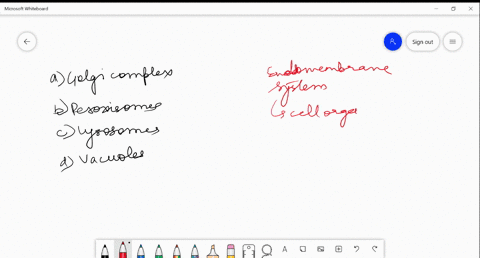 Microsoft Whiteboard
Sign out
a) Golgi complex
b) Peroxisomes
c) Lysosomes
d) Vacuoles
Endomembrane
system
↳ cell orga
A